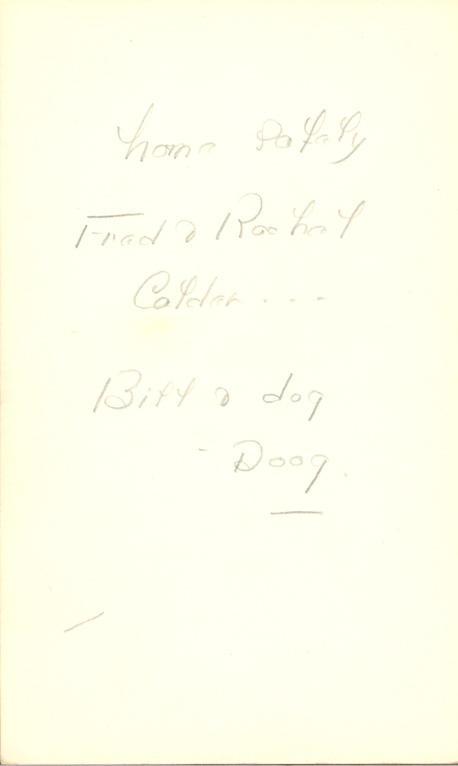 home safely
Fred & Rachel
Calder ...
Bill & dog
- Doog.